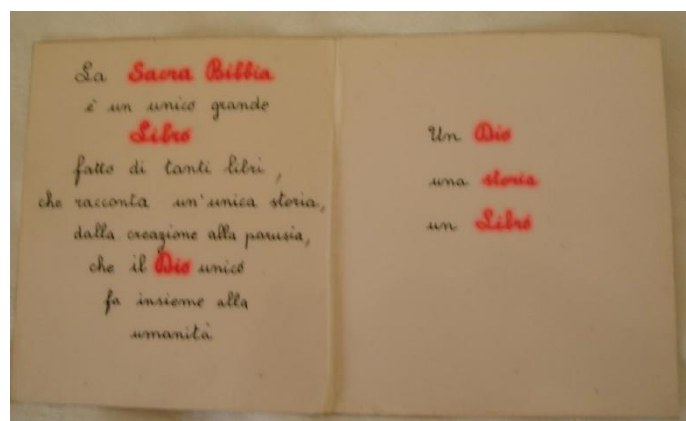 La Sacra Bibbia
è un unico grande
Libro
fatto di tanti libri,
che racconta un'unica storia,
dalla creazione alla parusia,
che il Dio unico
fa insieme alla
umanità
Un Dio
una storia
un Libro